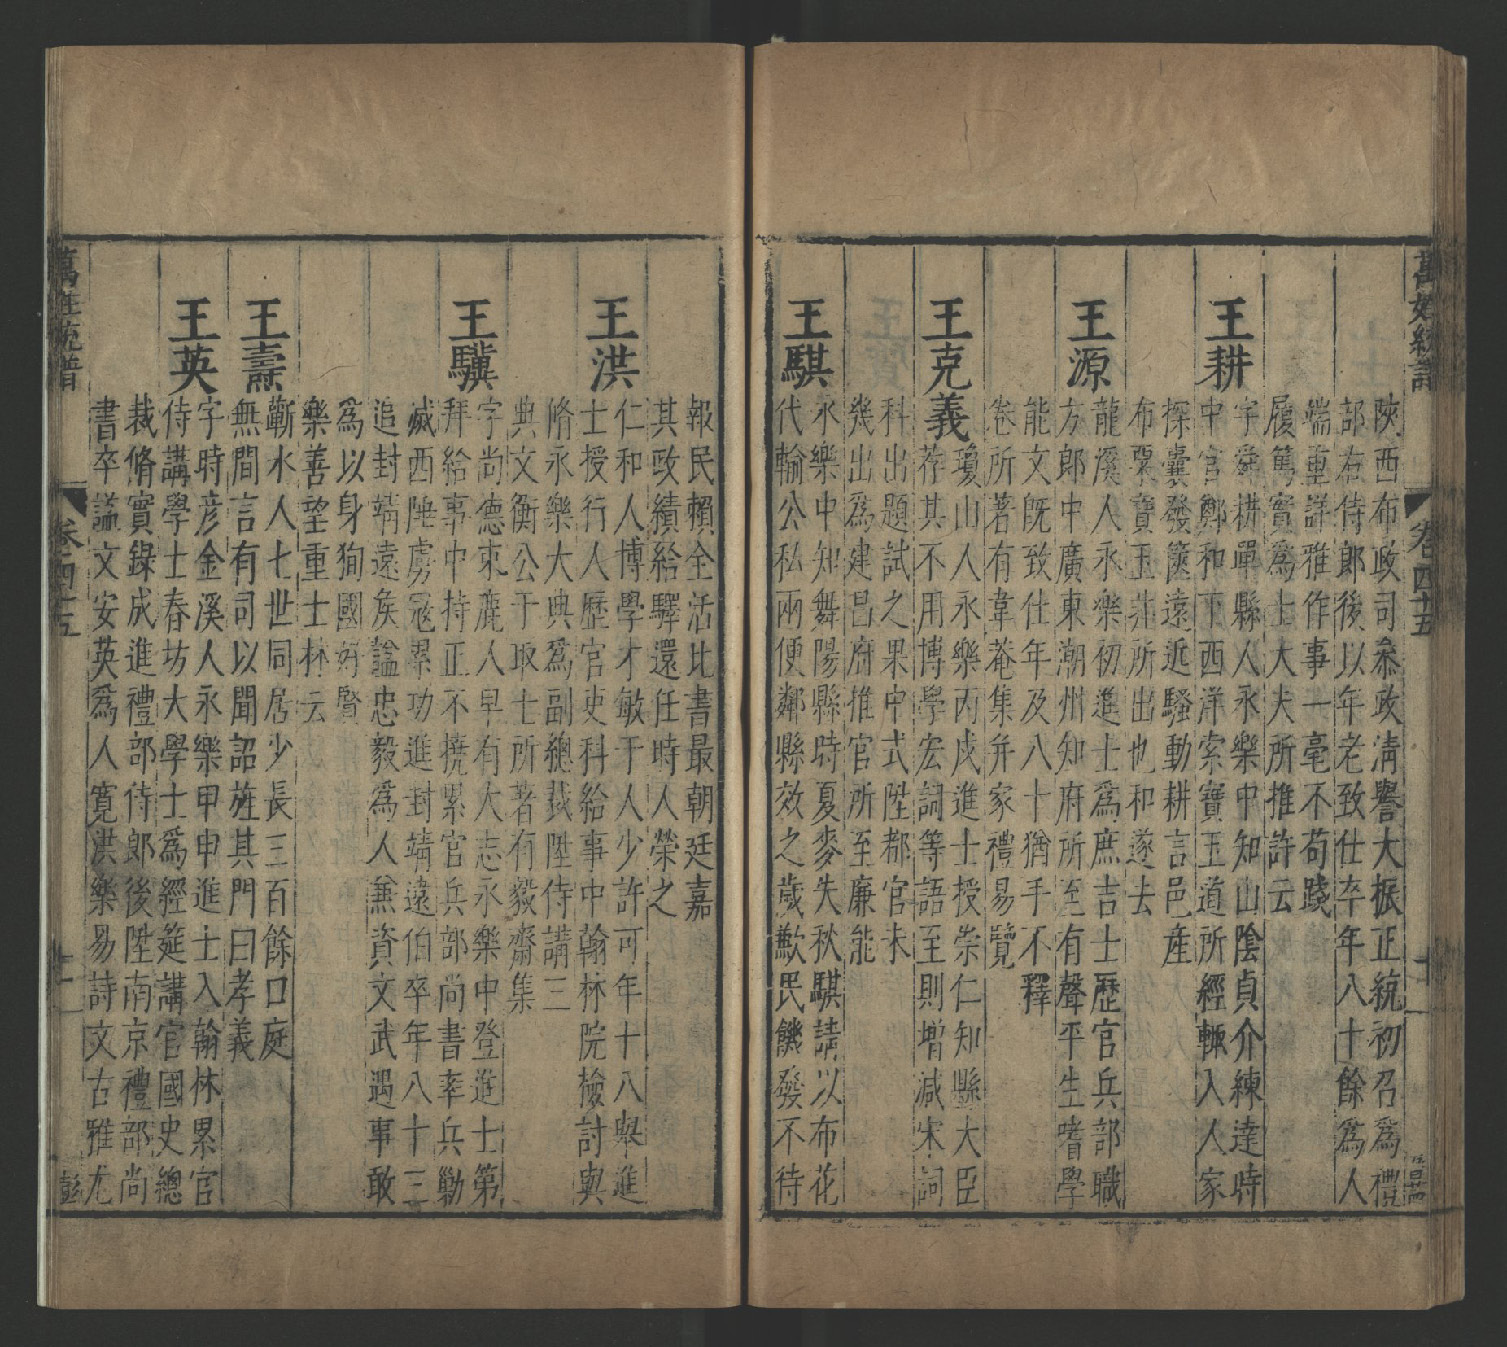 萬姓統譜
卷四十五
陝西布政司叅政清譽大振正統初召爲禮
部右侍郎後以年老致仕卒年八十餘爲人
端重詳雅作事一毫不苟踐
履篤實爲士大夫所推許云
王耕
字舜耕單縣人永樂中知山陰貞介練達時
中官鄭和下西洋索寶玉道所經輙入人家
探囊發篋遠近騷動耕言邑産
布粟寶玉非所出也和遂去
王源
龍溪人永樂初進士爲庶吉士歷官兵部職
方郎中廣東潮州知府所至有聲平生嗜學
能文既致仕年及八十猶手不釋
卷所著有葦菴集并家禮易覽
王克義
瓊山人永樂丙戌進士授崇仁知縣大臣
荐其不用博學宏詞等語至則增减宋詞
科出題試之果中式陞都官未
幾出爲建昌府推官所至廉能
王騏
永樂中知舞陽縣時夏麥失秋騏請以布花
代輸公私兩便鄰縣效之歲歉民饑發不待
報民賴全活比書最朝廷嘉
其政績給驛還任時人榮之
王洪
仁和人博學才敏于人少許可年十八舉進
士授行人歷官吏科給事中翰林院檢討與
脩永樂大典爲副總裁陞侍講三
典文衡公于取士所著有毅齋集
王驥
字尚德束鹿人早有大志永樂中登進士第
拜給事中持正不撓累官兵部尚書奉兵勦
滅西陲虜冦累功進封靖遠伯卒年八十三
追封靖遠矦謚忠毅爲人兼資文武遇事敢
爲以身狥國好賢
樂善望重士林云
王壽
蘄水人七世同居少長三百餘口庭
無間言有司以聞詔旌其門曰孝義
王英
字時彦金溪人永樂甲申進士入翰林累官
侍講學士春坊大學士爲經筵講官國史總
裁脩實錄成進禮部侍郎後陞南京禮部尚
書卒謚文安英爲人寬洪樂易詩文古雅尤
萬姓統譜
卷四十五